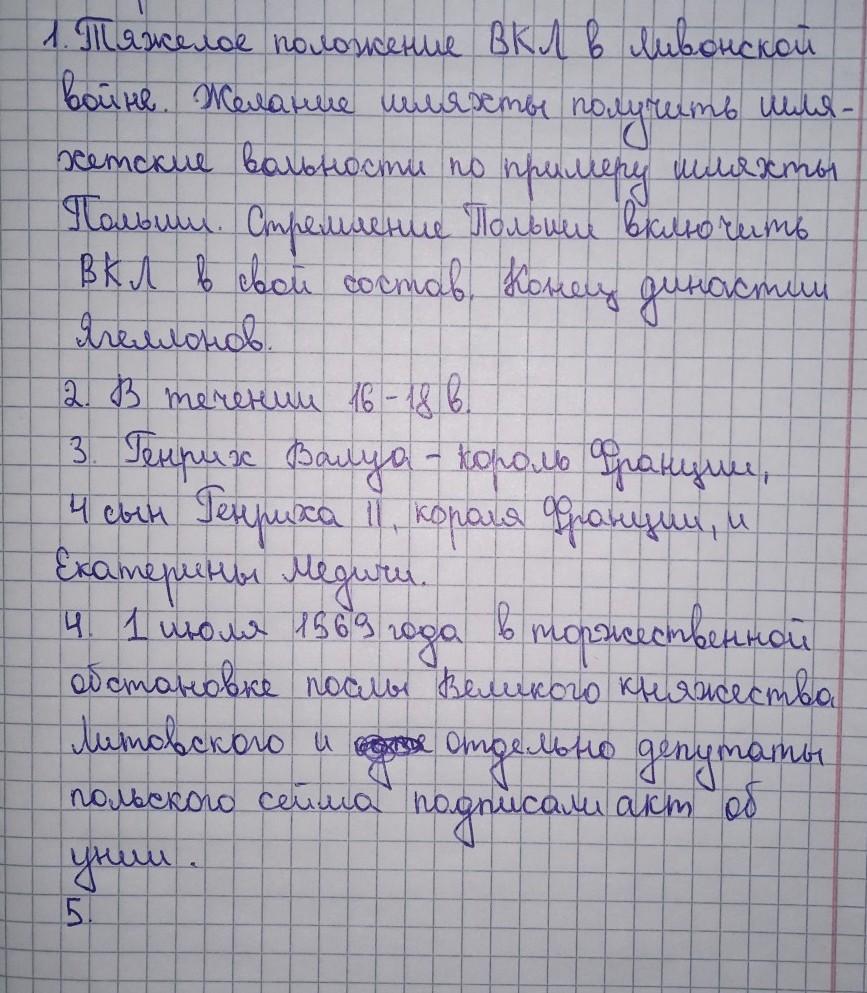 1. Тяжелое положение ВКЛ в Ливонской
войне. Желание шляхты получить шля-
хетские вольности по примеру шляхты
Польши. Стремление Польши включить
ВКЛ в свой состав. Конец династии
Ягеллонов.
2. В течении 16-18 в.
3. Генрих Валуа - король Франции,
4 сын Генриха II, короля Франции, и
Екатерины Медичи.
4. 1 июля 1569 года в торжественной
обстановке послы Великого княжества
Литовского и отдельно депутаты
польского сейма подписали акт об
унии.
5.